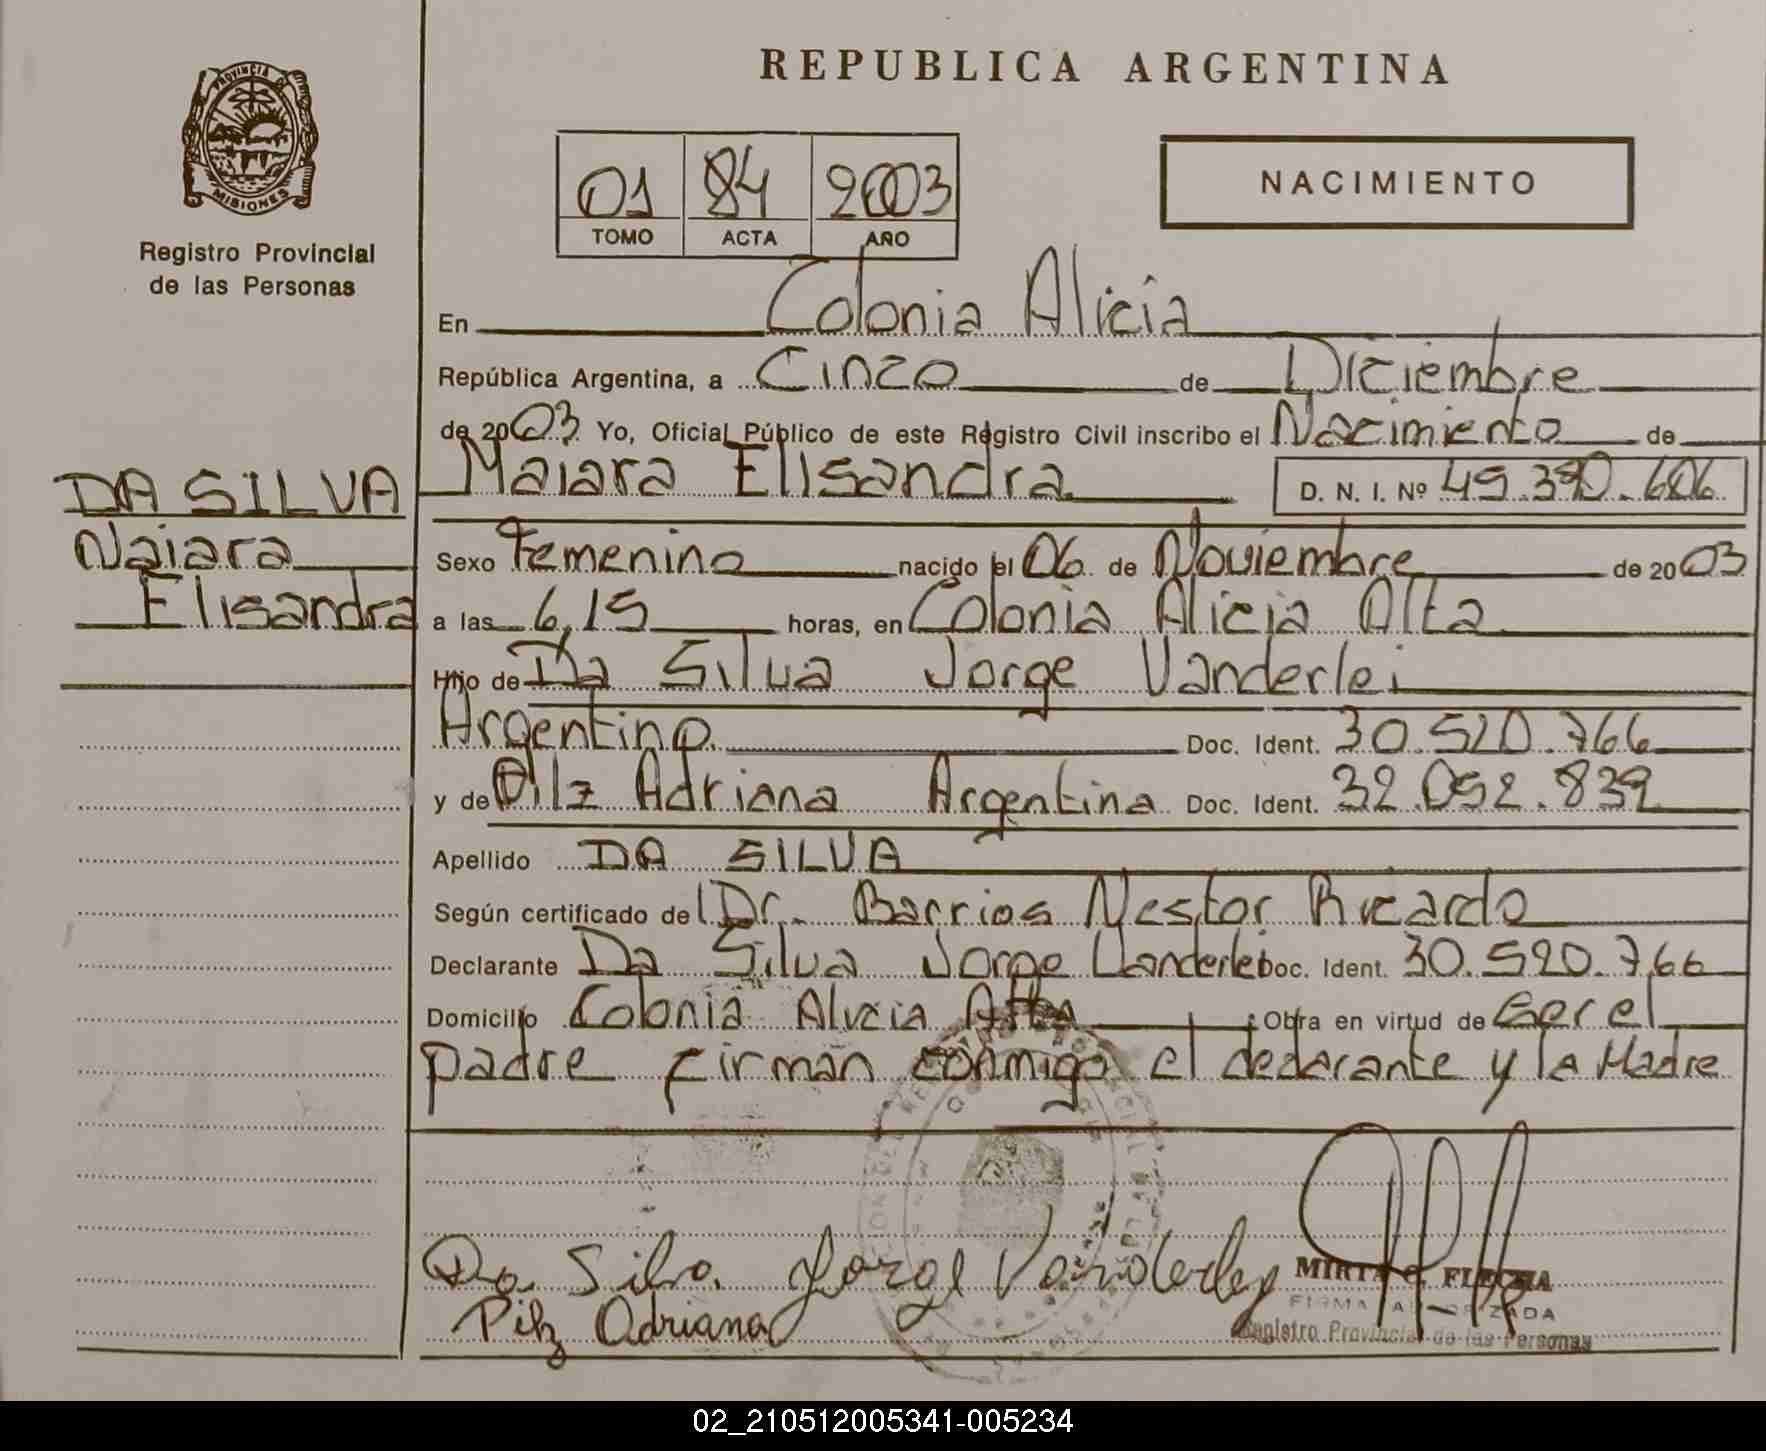 REPUBLICA ARGENTINA
PROVINCIA DE
MISIONES
Registro Provincial
de las Personas
01 84 2003
TOMO ACTA AÑO
NACIMIENTO
En Colonia Alicia
República Argentina, a Cinco de Diciembre
de 2003 Yo, Oficial Público de este Registro Civil inscribo el Nacimiento de
Maiara Elisandra D. N. I. Nº
DA SILVA
Naiara
Elisandra
Sexo Femenino nacido el 06 de Noviembre de 2003
a las 6,15 horas, en Colonia Alicia Alta
Hijo de Da Silva Jorge Vanderlei
Argentino. Doc. Ident. 30.520.766
y de Pilz Adriana Argentina Doc. Ident. 32.052.839
Apellido DA SILVA
Según certificado de Dr. Barrios Nestor Ricardo
Declarante Da Silva Jorge Vanderlei Doc. Ident. 30.520.766
Domicilio Colonia Alicia Alta Obra en virtud de ser el
padre firman conmigo el declarante y la Madre
Da Silva Jorge Vanderley
Pilz Adriana
MIRTA G. FLECHA
FIRMA AUTORIZADA
Registro Provincial de las Personas
02_210512005341-005234